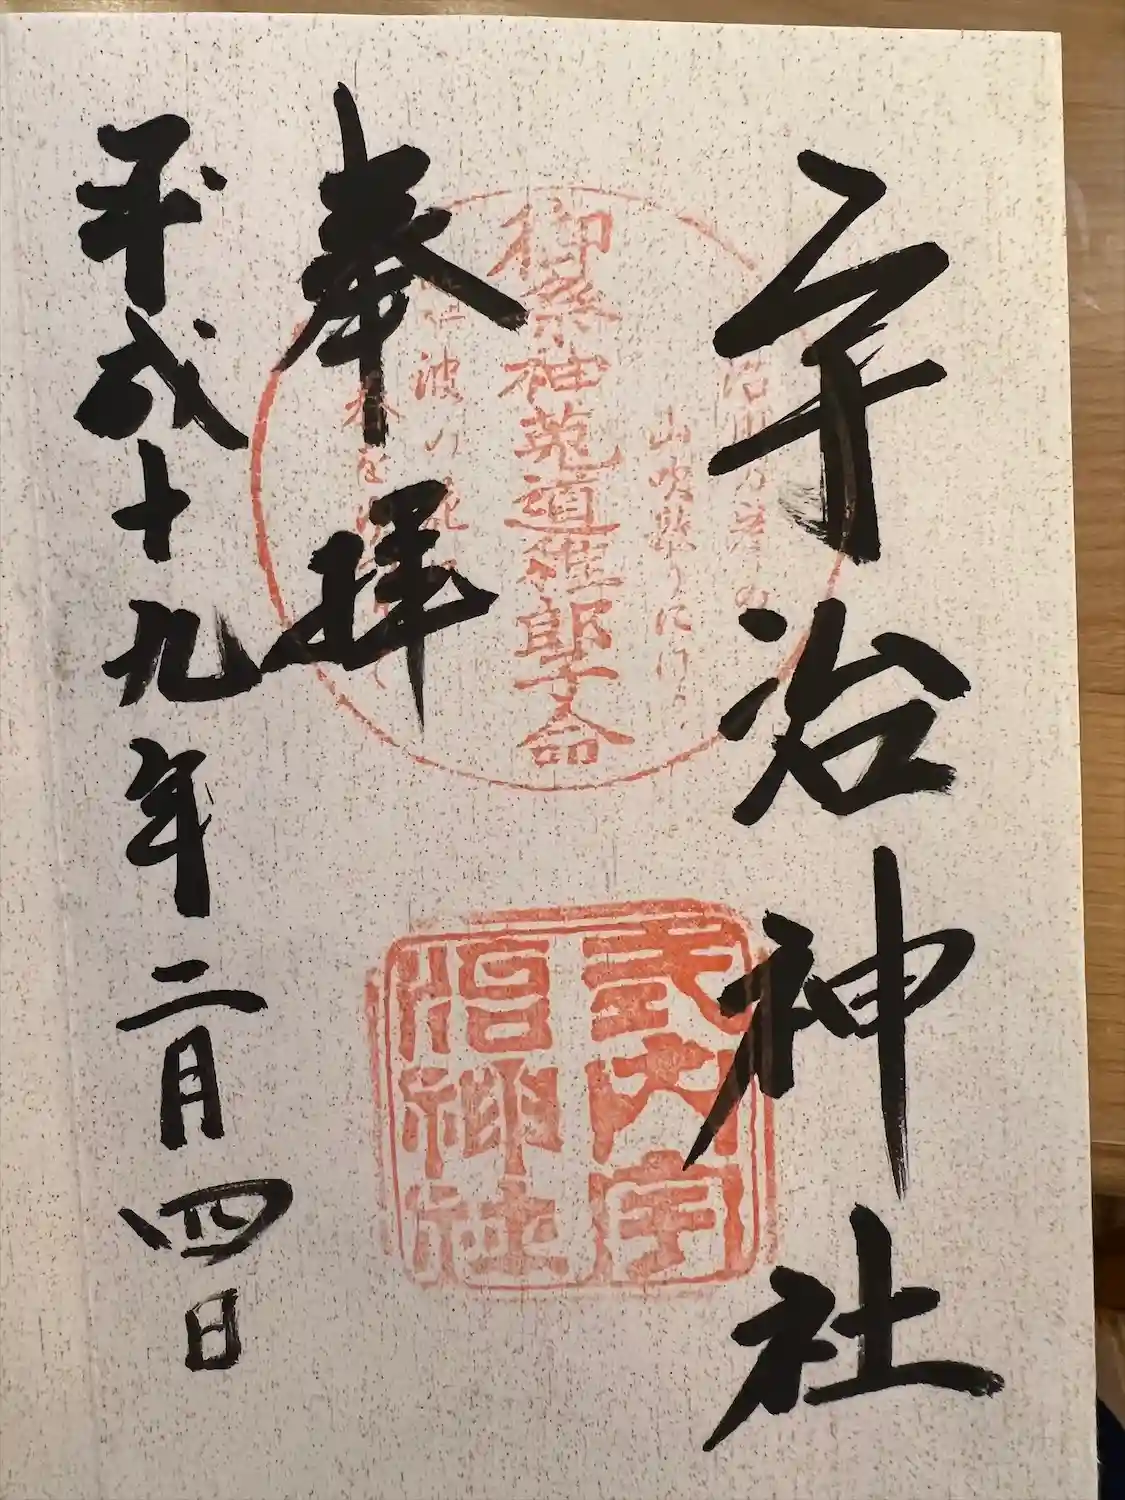 宇治神社
奉拝
平成十九年二月四日
御祭神菟道稚郎子命
山吹
波の花
式内宇
治神社